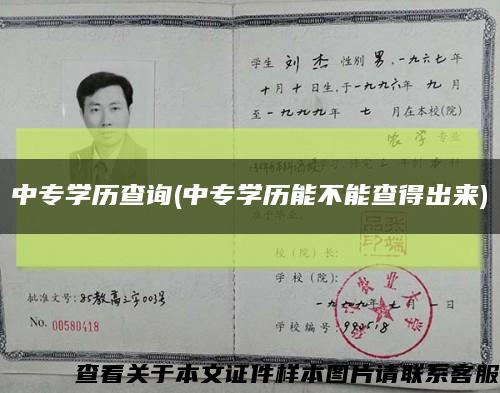 学生 刘杰 性别 男,一九六七年
十月十日生,于一九九六年 九月
至一九九九年 七 月在本校(院)
农学 专业
中专学历查询(中专学历能不能查得出来)
准予毕业。
校(院)长:
学校(院):
农业大学
批准文号:85教高三字003号
No. 00580418
学校编号:
查看关于本文证件样本图片请联系客服